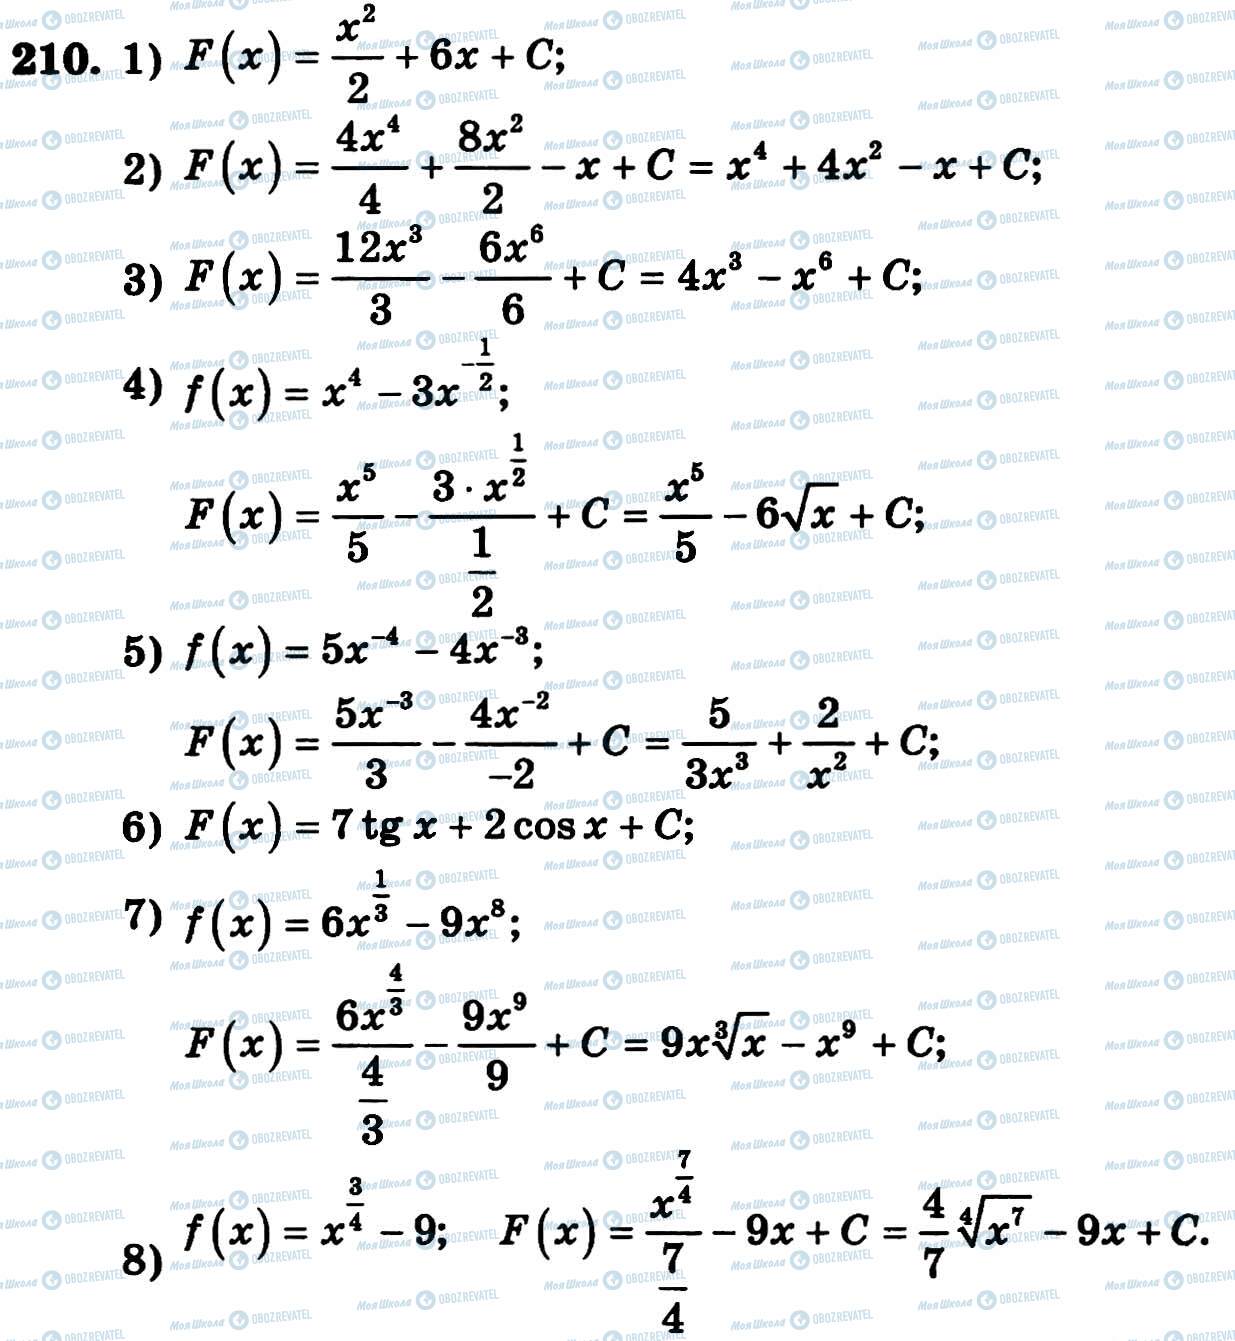 210. 1) F(x) = x²/2 + 6x + C;
2) F(x) = 4x⁴/4 + 8x²/2 − x + C = x⁴ + 4x² − x + C;
3) F(x) = 12x³/3 − 6x⁶/6 + C = 4x³ − x⁶ + C;
4) f(x) = x⁴ − 3x^(−1/2);
F(x) = x⁵/5 − (3 · x^(1/2))/(1/2) + C = x⁵/5 − 6√x + C;
5) f(x) = 5x⁻⁴ − 4x⁻³;
F(x) = 5x⁻³/3 − 4x⁻²/−2 + C = 5/(3x³) + 2/x² + C;
6) F(x) = 7 tg x + 2 cos x + C;
7) f(x) = 6x^(1/3) − 9x⁸;
F(x) = 6x^(4/3)/(4/3) − 9x⁹/9 + C = 9x∛x − x⁹ + C;
8) f(x) = x^(3/4) − 9; F(x) = x^(7/4)/(7/4) − 9x + C = 4/7 ∜x⁷ − 9x + C.
Моя Школа OBOZREVATEL